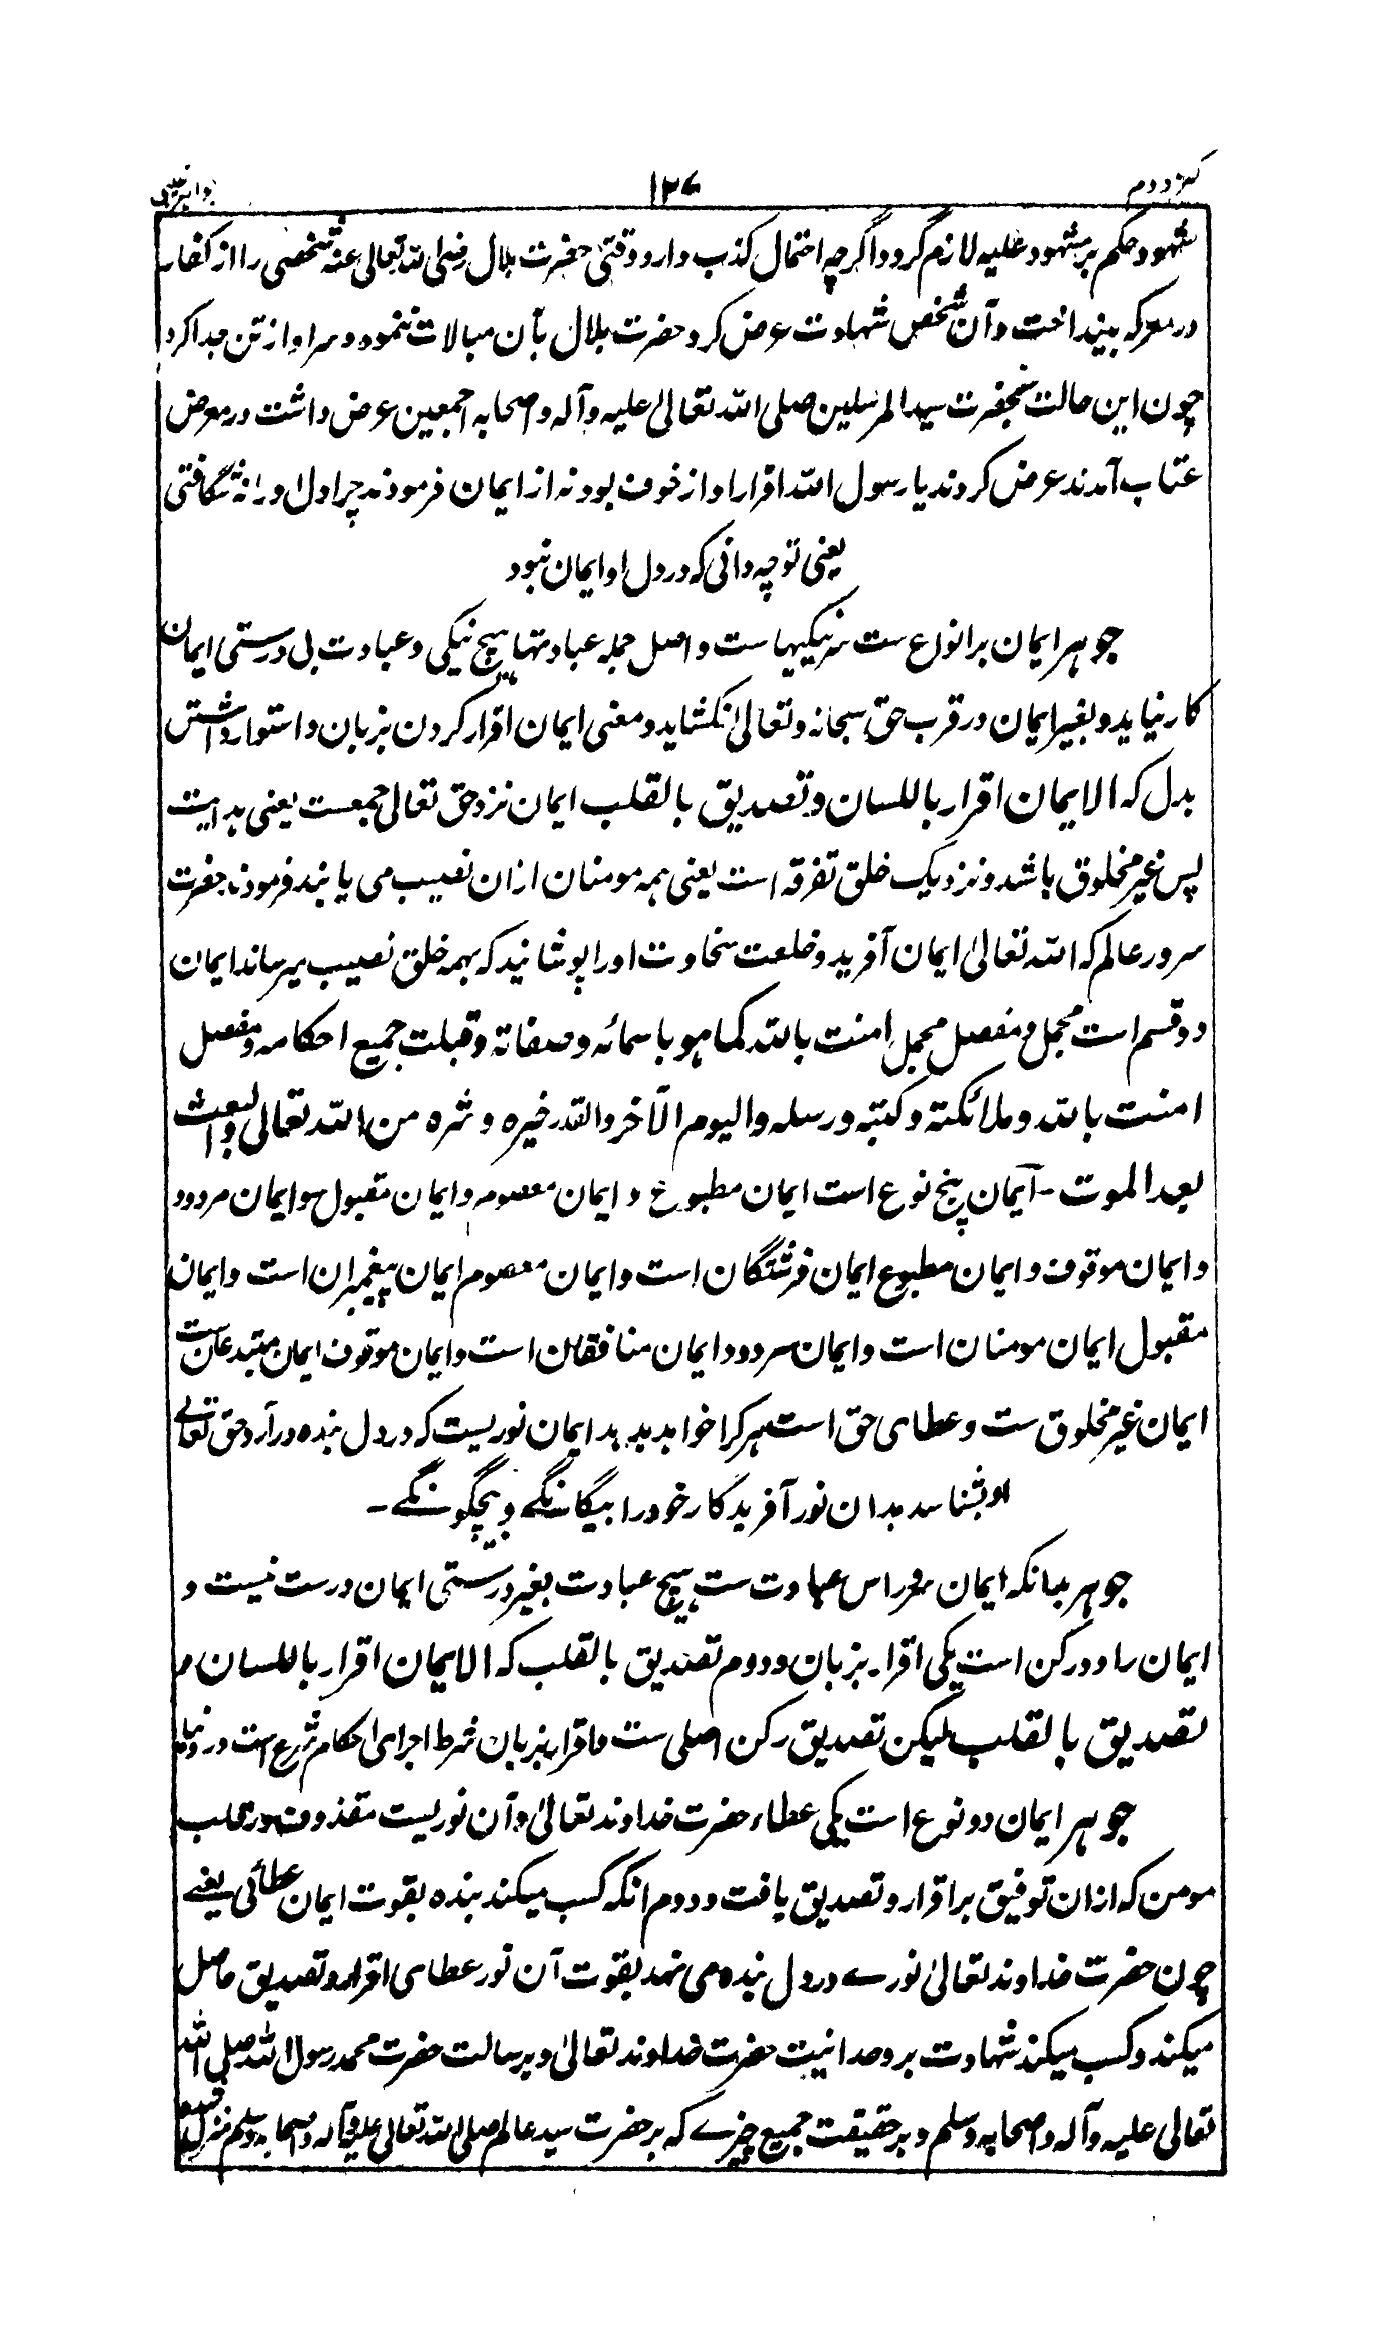 کنز دوم
۱۲۷
جواهر غیبی
شهود حکم بر مشهود علیه لازم گردد اگرچه احتمال کذب دارد وقتی حضرت بلال رضی الله تعالی عنه شخصی را از کفار
در معرکه بینداخت و آن شخص شهادت عرض کرد حضرت بلال بآن مبالات ننمود و سر او از تن جدا کرد
چون این حالت بحضرت سید المرسلین صلی الله تعالیٰ علیه و آله و اصحابه اجمعین عرض داشت در معرض
عتاب آمدند عرض کردند یا رسول الله اقرار او از خوف بود نه از ایمان فرمودند چرا دل او را نه شگافتی
یعنی تو چه دانی که در دل او ایمان نبود
جوهر ایمان بر انواع ست سر نیکیهاست و اصل جمله عبادتها هیچ نیکی و عبادت بی درستی ایمان
کار نیاید و بغیر ایمان در قرب حق سبحانه و تعالیٰ نکشاید و معنی ایمان اقرار کردن بزبان و استوار داشتن
بدل که الایمان اقرار باللسان و تصدیق بالقلب ایمان نزد حق تعالی جمعست یعنی هدایت
پس غیر مخلوق باشد و نزدیک خلق تفرقه است یعنی همه مومنان ازان نصیب می یابند فرمودند حضرت
سرور عالم که الله تعالیٰ ایمان آفرید و خلعت سخاوت او را پوشانید که بهمه خلق نصیب میرساند ایمان
دو قسم است مجمل و مفصل مجمل امنت بالله کما هو باسمائه و صفاته و قبلت جمیع احکامه و مفصل
امنت بالله و ملائکته و کتبه و رسله والیوم الآخر والقدر خیره و شره من الله تعالی والبعث
بعد الموت - ایمان پنج نوع است ایمان مطبوع و ایمان معصوم و ایمان مقبول و ایمان مردود
و ایمان موقوف و ایمان مطبوع ایمان فرشتگان است و ایمان معصوم ایمان پیغمبران است و ایمان
مقبول ایمان مومنان است و ایمان مردود ایمان منافقان است و ایمان موقوف ایمان مبتدعان ست
ایمان غیر مخلوق ست و عطای حق است هر کرا خواهد بدهد ایمان نوریست که در دل بنده در آرد حق تعالے
او بشناسد بدان نور آفریدگار خود را بیگانگے و بیچگونگے -
جوهر بدانکه ایمان سر و راس عبادت ست هیچ عبادت بغیر درستی ایمان درست نیست و
ایمان را دو رکن است یکی اقرار بزبان و دوم تصدیق بالقلب که الایمان اقرار باللسان و
تصدیق بالقلب لیکن تصدیق رکن اصلی ست و اقرار بزبان شرط اجرای احکام شرع است در دنیا
جوهر ایمان دو نوع است یکی عطاء حضرت خداوند تعالیٰ و آن نوریست مقذوف در قلب
مومن که ازان توفیق بر اقرار و تصدیق یافت و دوم انکه کسب میکند بنده بقوت ایمان عطائی یعنے
چون حضرت خداوند تعالیٰ نورے در دل بنده می نهد بقوت آن نور عطای اقرار و تصدیق حاصل
میکند و کسب میکند شهادت بر وحدانیت حضرت خداوند تعالیٰ و بر رسالت حضرت محمد رسول الله صلی الله
تعالی علیه و آله و اصحابه وسلم و بر حقیقت جمیع چیزے که بر حضرت سید عالم صلی الله تعالی علیه و آله و اصحابه وسلم منزل